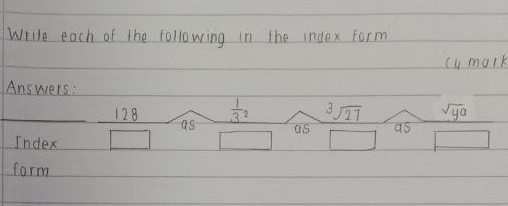 Write each of the following in the index form
(4 mark
Answers:
128 as 1/3² as ³√27 as √ya
Index
form